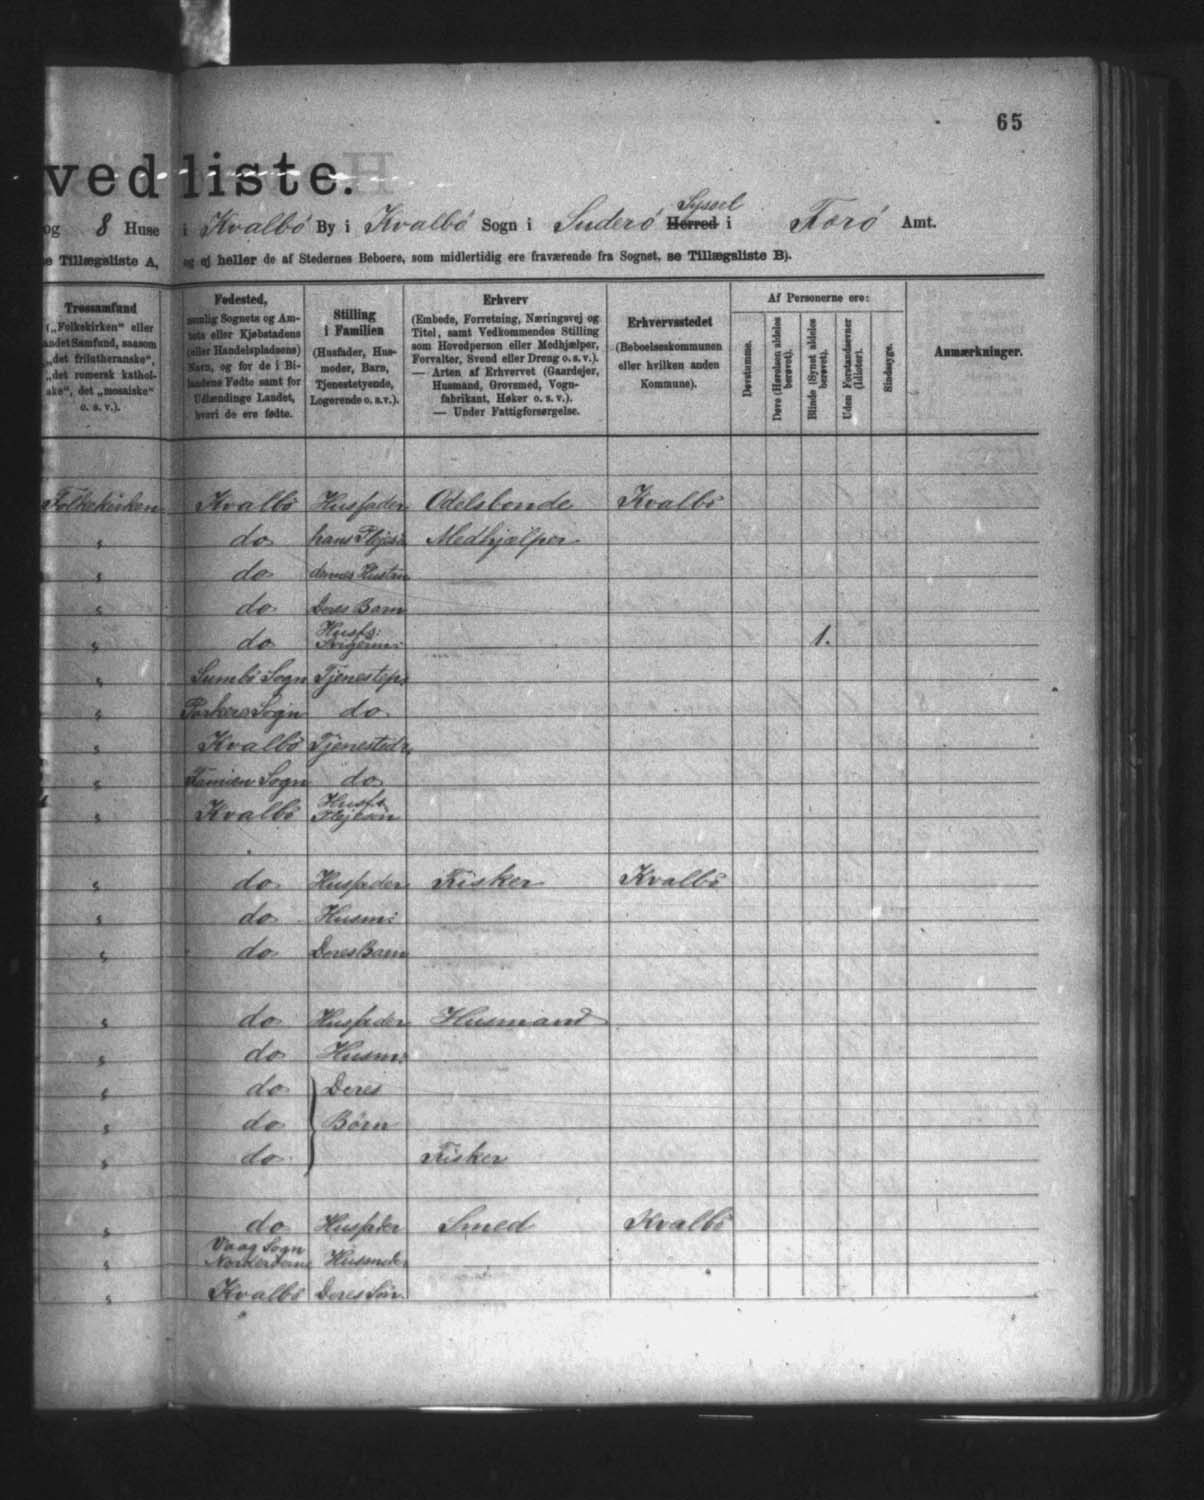 65
vedliste.
og 8 Huse i Kvalbö By i Kvalbö Sogn i Suderö Herred Syssel i Færö Amt.
e Tillægsliste A, og ej heller de af Stedernes Beboere, som midlertidig ere fraværende fra Sognet, se Tillægsliste B).
Trossamfund
(„Folkekirken“ eller
andet Samfund, saasom
„det frilutheranske“,
„det romersk kathol-
ske“, det „mosaiske“
o. s. v.).
Fødested,
nemlig Sognets og Am-
tets eller Kjøbstadens
(eller Handelspladsens)
Navn, og for de i Bi-
landene Fødte samt for
Udlændinge Landet,
hvori de ere fødte.
Stilling
i Familien
(Husfader, Hus-
moder, Barn,
Tjenestetyende,
Logerende o. s. v.).
Erhverv
(Embede, Forretning, Næringsvej og
Titel, samt Vedkommendes Stilling
som Hovedperson eller Medhjælper,
Forvalter, Svend eller Dreng o. s. v.).
— Arten af Erhvervet (Gaardejer,
Husmand, Grovsmed, Vogn-
fabrikant, Høker o. s. v.).
— Under Fattigforsørgelse.
Erhvervsstedet
(Beboelseskommunen
eller hvilken anden
Kommune).
Af Personerne ere:
Døvstumme.
Døve (Hørelsen aldeles berøvet).
Blinde (Synet aldeles berøvet).
Uden Forstandsevner (Idioter).
Sindssyge.
Anmærkninger.
Folkekirken Kvalbö Husfader Odelsbonde Kvalbö
" do hans Plejesö Medhjælper
" do dennes Hustru
" do Deres Barn
" do Husfs: Svigerm: 1.
" Sumbö Sogn Tjenestep:
" Porkere Sogn do
" Kvalbö Tjenestedr,
" Famien Sogn do
" Kvalbö Husfs Plejesön
" do Husfader Fisker Kvalbö
" do Husm:
" do Deres Barn
" do Husfader Husmand
" do Husm:
" do Deres
" do Børn
" do Fisker
" do Husfader Smed Kvalbö
" Vaag Sogn Norderöerne Husmoder
" Kvalbö Deres Sön